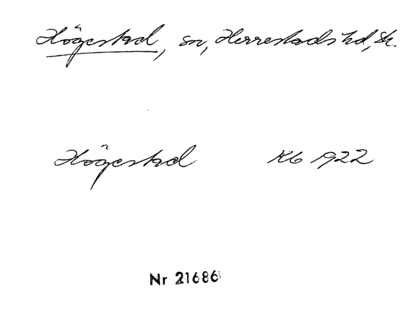 Högestad, sn, Herrestads hd, Sk.
Högestad Kb 1922
Nr 21686